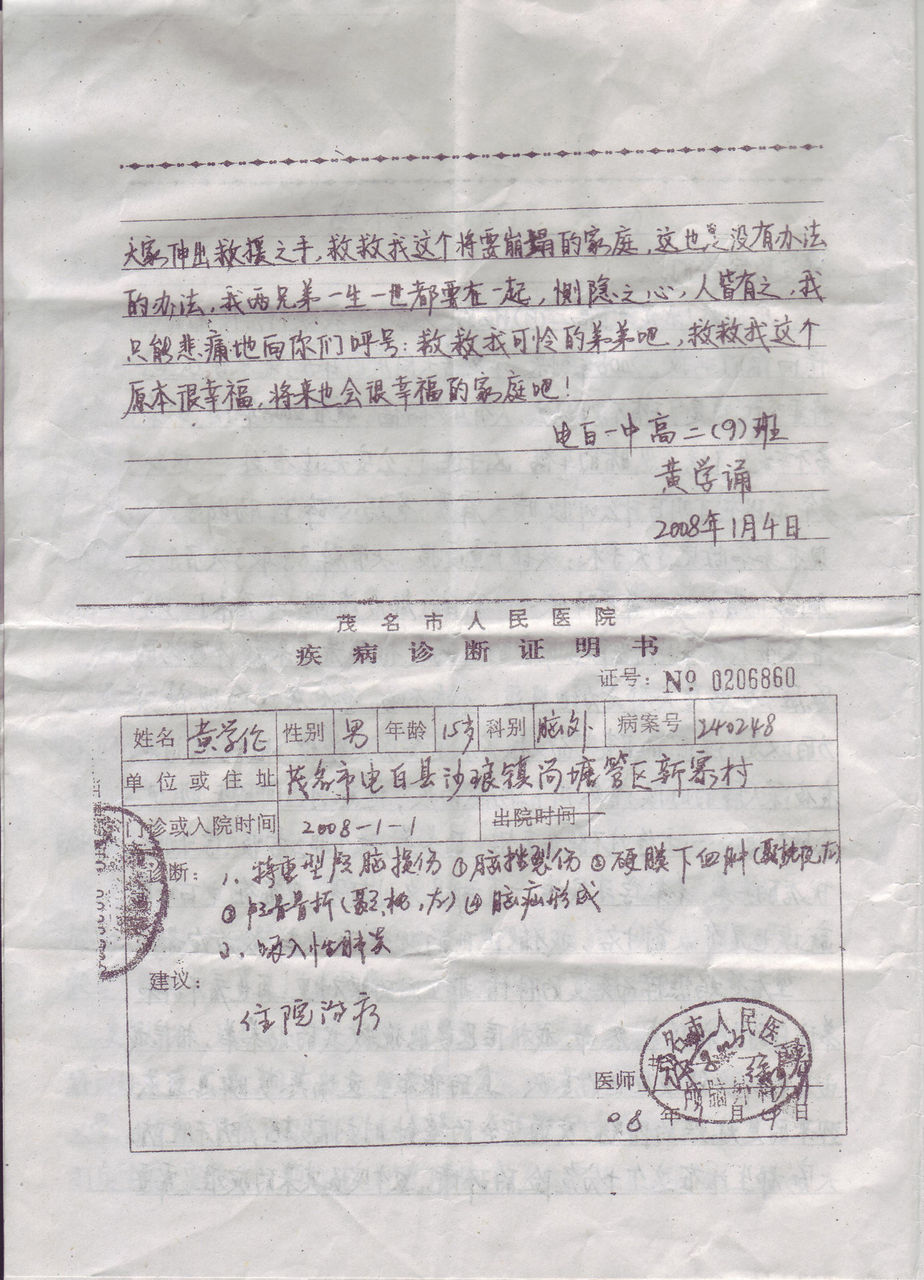 大家伸出救援之手,救救我这个将要崩塌的家庭,这也是没有办法
的办法,我两兄弟一生一世都要在一起,恻隐之心,人皆有之,我
只能悲痛地向你们呼号:救救我可怜的弟弟吧,救救我这个
原本很幸福,将来也会很幸福的家庭吧!
电白一中高二(9)班
黄学诵
2008年1月4日
茂名市人民医院
疾病诊断证明书
证号:No 0206860
姓名 黄学伦 性别 男 年龄 15岁 科别 脑外 病案号 240248
单位或住址 茂名市电白县沙琅镇尚塘管区新寨村
门诊或入院时间 2008-1-1 出院时间
诊断: 1、特重型颅脑损伤 ①脑挫裂伤 ②硬膜下血肿(颞枕顶,左)
③颅骨骨折(颞,左) ④脑疝形成
2、吸入性肺炎
建议:
住院治疗
医师
茂名市人民医
08年 月 日